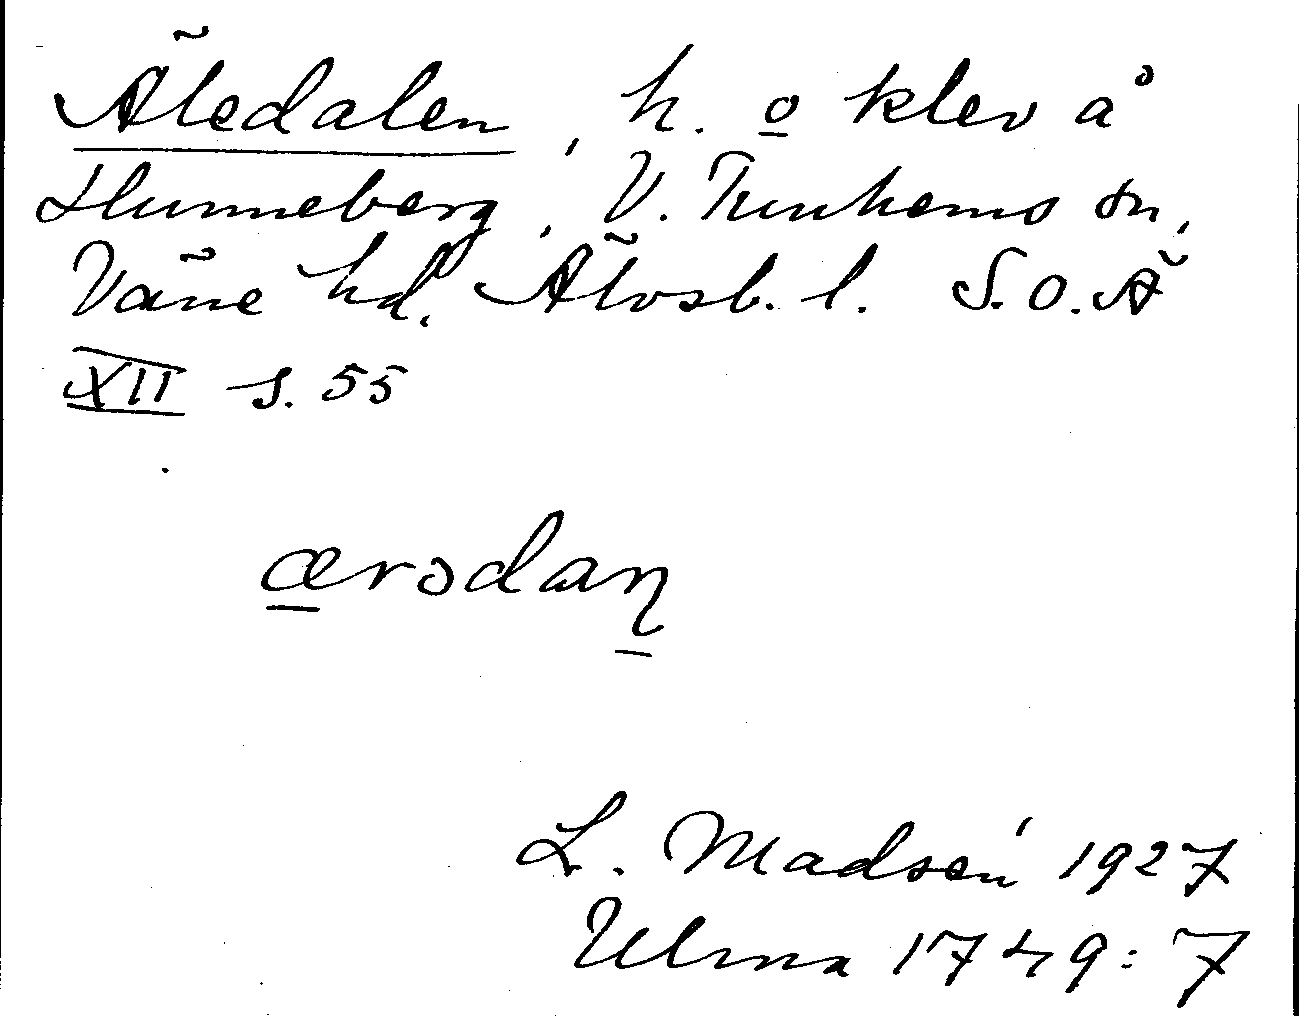 Äledalen, h. o klev å
Hunneberg, V. Tunhems sn,
Väne hd. Älvsb. l. S.O.Ä
XII s. 55
ærədaɳ
L. Madsén 1927
Ulma 1749:7